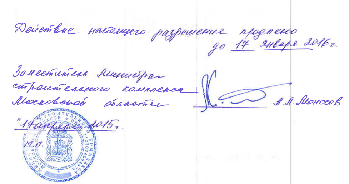 Действие настоящего разрешения продлено
до 17 января 2016 г.
Заместитель Министра
строительного комплекса
Московской области
"17 апреля 2015 г.
М.П.